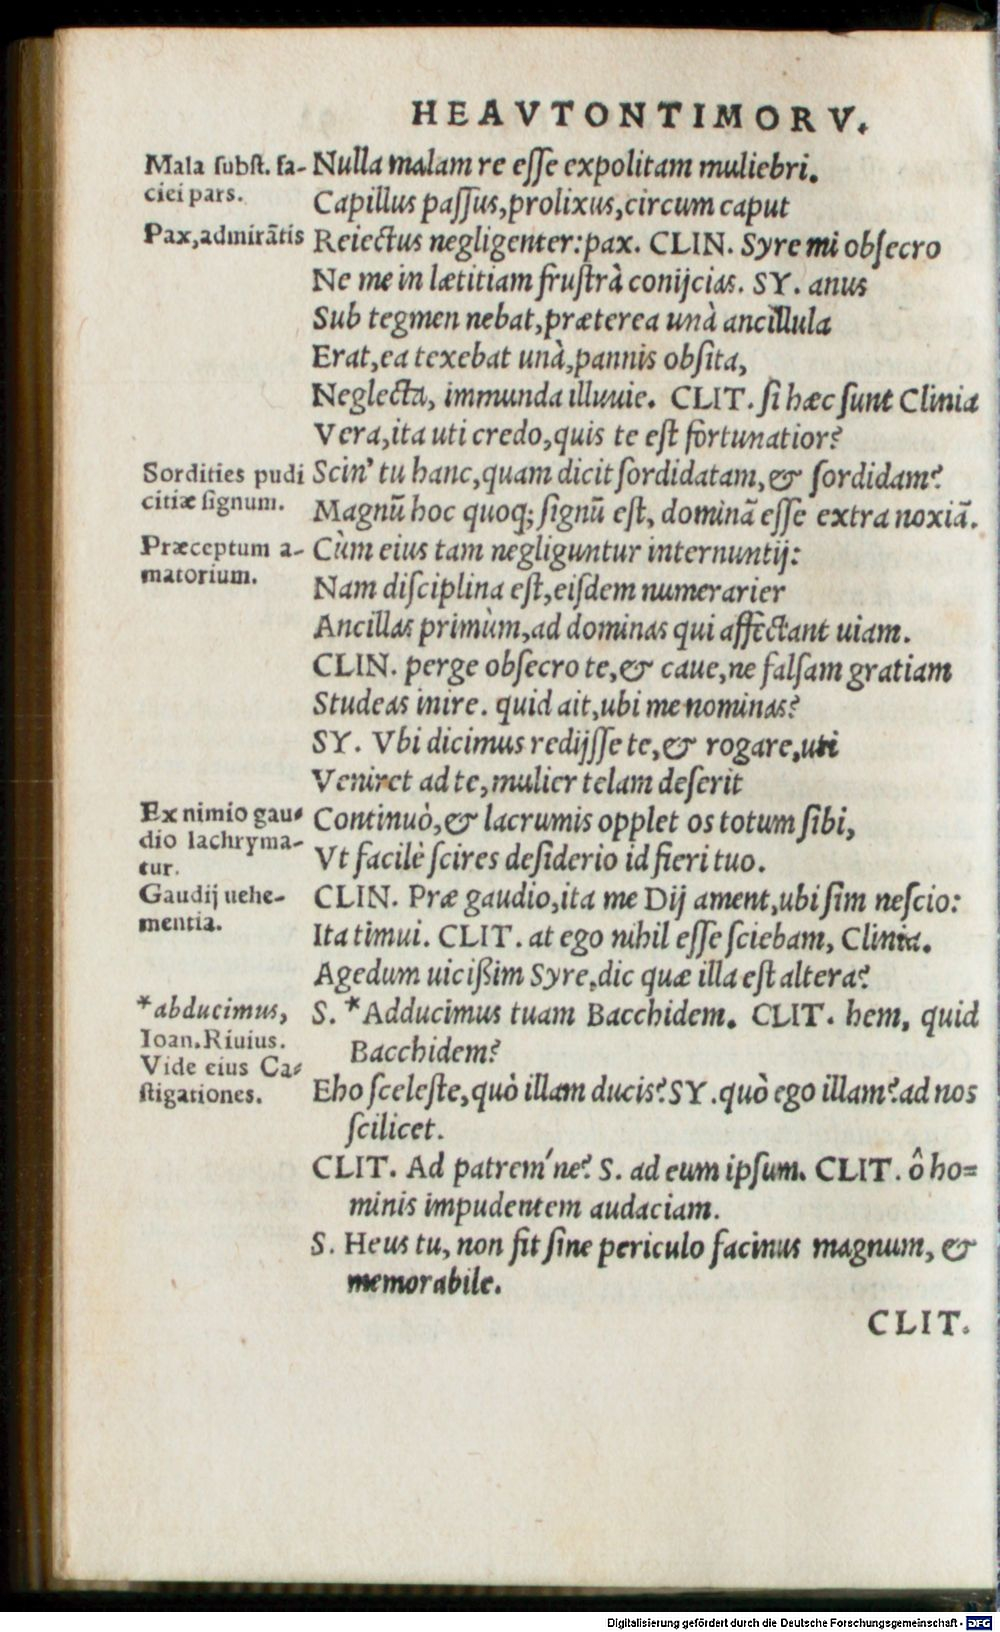 HEAVTONTIMORV.
Mala subst. fa-
ciei pars.
Pax,admirãtis
Nulla malam re esse expolitam muliebri.
Capillus passus,prolixus,circum caput
Reiectus negligenter:pax. CLIN. Syre mi obsecro
Ne me in lætitiam frustrà conijcias. SY. anus
Sub tegmen nebat,præterea unà ancillula
Erat,ea texebat unà,pannis obsita,
Neglecta, immunda illuuie. CLIT. si hæc sunt Clinia
Vera,ita uti credo,quis te est fortunatior?
Sordities pudi
citiæ signum.
Scin' tu hanc,quam dicit sordidatam,& sordidam?
Magnũ hoc quoq; signũ est, dominã esse extra noxiã.
Præceptum a-
matorium.
Cùm eius tam negliguntur internuntij:
Nam disciplina est,eisdem numerarier
Ancillas primùm,ad dominas qui affectant uiam.
CLIN. perge obsecro te,& caue,ne falsam gratiam
Studeas inire. quid ait,ubi me nominas?
SY. Vbi dicimus redijsse te,& rogare,uti
Veniret ad te,mulier telam deserit
Ex nimio gau-
dio lachryma-
tur.
Continuò,& lacrumis opplet os totum sibi,
Vt facilè scires desiderio id fieri tuo.
Gaudij uehe-
mentia.
CLIN. Præ gaudio,ita me Dij ament,ubi sim nescio:
Ita timui. CLIT. at ego nihil esse sciebam, Clinia.
Agedum uicißim Syre,dic quæ illa est altera?
*abducimus,
Ioan.Riuius.
Vide eius Ca-
stigationes.
S. *Adducimus tuam Bacchidem. CLIT. hem, quid
Bacchidem?
Eho sceleste,quò illam ducis? SY.quò ego illam?ad nos
scilicet.
CLIT. Ad patrem'ne? S. ad eum ipsum. CLIT. ô ho=
minis impudentem audaciam.
S. Heus tu, non fit sine periculo facinus magnum, &
memorabile.
CLIT.
Digitalisierung gefördert durch die Deutsche Forschungsgemeinschaft - DFG